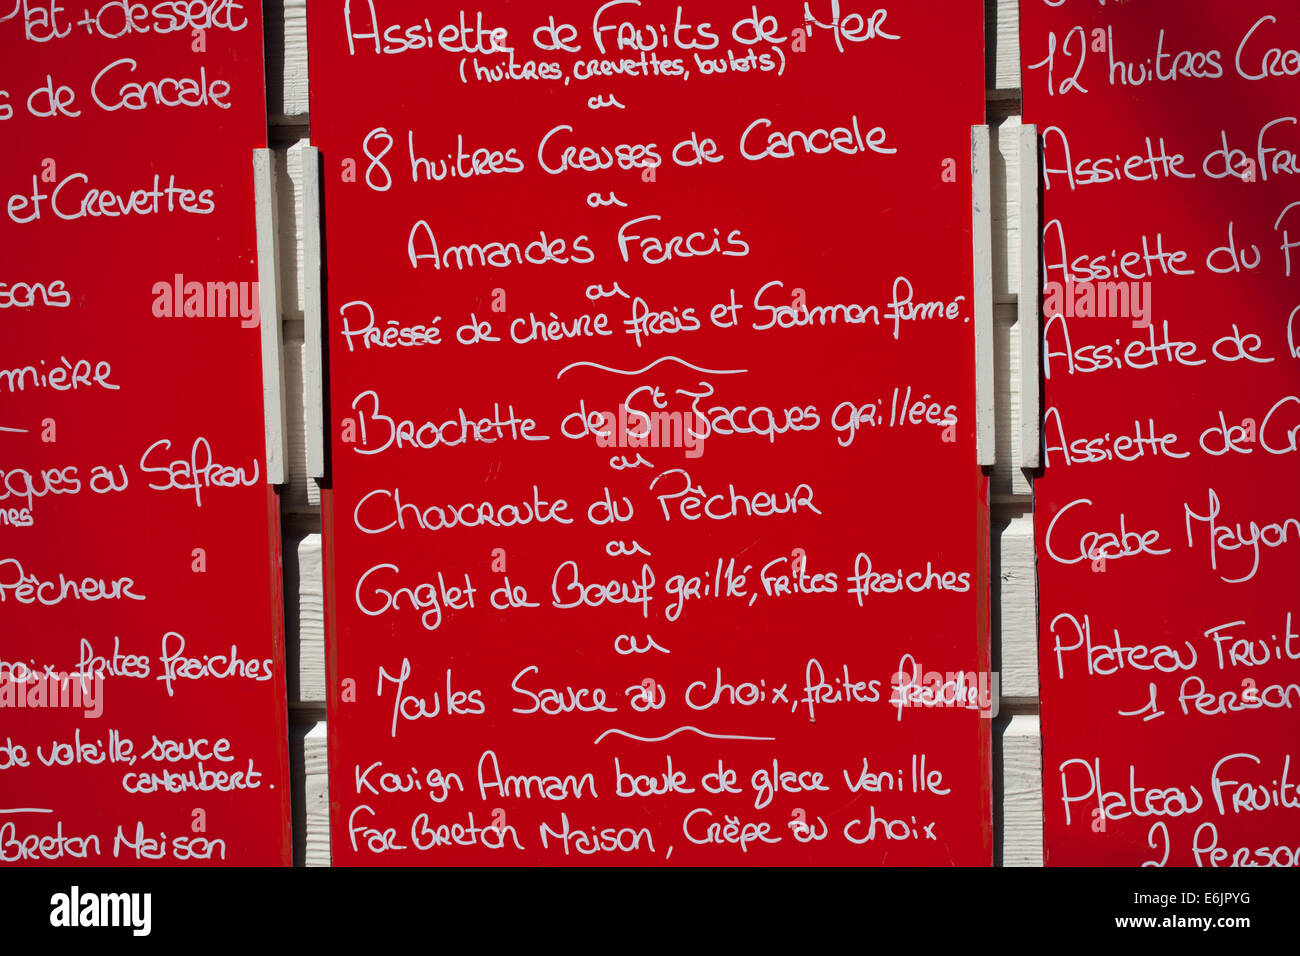 Plat + dessert
s de Cancale
et Crevettes
sons
mière
cques au Safran
nes
Pêcheur
hoix, frites fraîches
de volaille, sauce
camembert.
Breton Maison
Assiette de Fruits de Mer
(huîtres, crevettes, bulots)
ou
8 huîtres Creuses de Cancale
ou
Amandes Farcis
ou
Préssé de chèvre frais et Saumon fumé.
Brochette de St Jacques grillées
ou
Choucroute du Pêcheur
ou
Onglet de Boeuf grillé, Frites fraîches
ou
Moules Sauce au choix, frites fraîche.
Kouign Amann boule de glace Vanille
Far Breton Maison, Crêpe au choix
12 huîtres Cre
Assiette de Fru
Assiette du P
Assiette de
Assiette de Cr
Crabe Mayon
Plateau Fruit
1 Person
Plateau Fruits
2 Person
alamy
alamy stock photo
E6JPYG
www.alamy.com